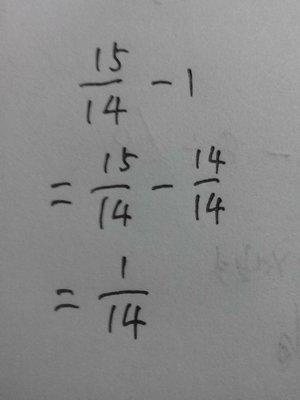 15/14 - 1
= 15/14 - 14/14
= 1/14